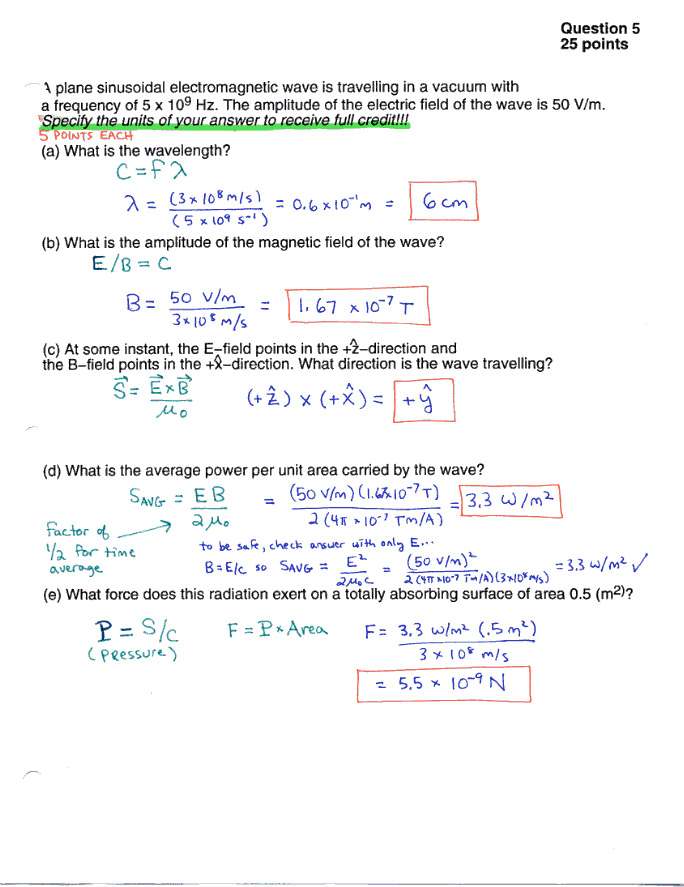 Question 5
25 points
A plane sinusoidal electromagnetic wave is travelling in a vacuum with
a frequency of 5 x 10⁹ Hz. The amplitude of the electric field of the wave is 50 V/m.
Specify the units of your answer to receive full credit!!!
5 POINTS EACH
(a) What is the wavelength?
C = f λ
λ = (3 × 10⁸ m/s) / (5 × 10⁹ s⁻¹) = 0.6 × 10⁻¹ m = 6 cm
(b) What is the amplitude of the magnetic field of the wave?
E/B = C
B = 50 V/m / 3 × 10⁸ m/s = 1.67 × 10⁻⁷ T
(c) At some instant, the E–field points in the +ẑ–direction and
the B–field points in the +x̂–direction. What direction is the wave travelling?
S⃗ = E⃗ × B⃗ / μ₀ (+ẑ) × (+x̂) = +ŷ
(d) What is the average power per unit area carried by the wave?
SAVG = EB / 2μ₀ = (50 V/m)(1.67×10⁻⁷ T) / 2(4π × 10⁻⁷ Tm/A) = 3.3 W/m²
factor of
1/2 for time
average
to be safe, check answer with only E...
B = E/c so SAVG = E² / 2μ₀c = (50 V/m)² / 2(4π×10⁻⁷ Tm/A)(3×10⁸ m/s) = 3.3 W/m² ✓
(e) What force does this radiation exert on a totally absorbing surface of area 0.5 (m²)?
P = S/c F = P × Area F = 3.3 W/m² (.5 m²) / 3 × 10⁸ m/s
(PRessure)
= 5.5 × 10⁻⁹ N